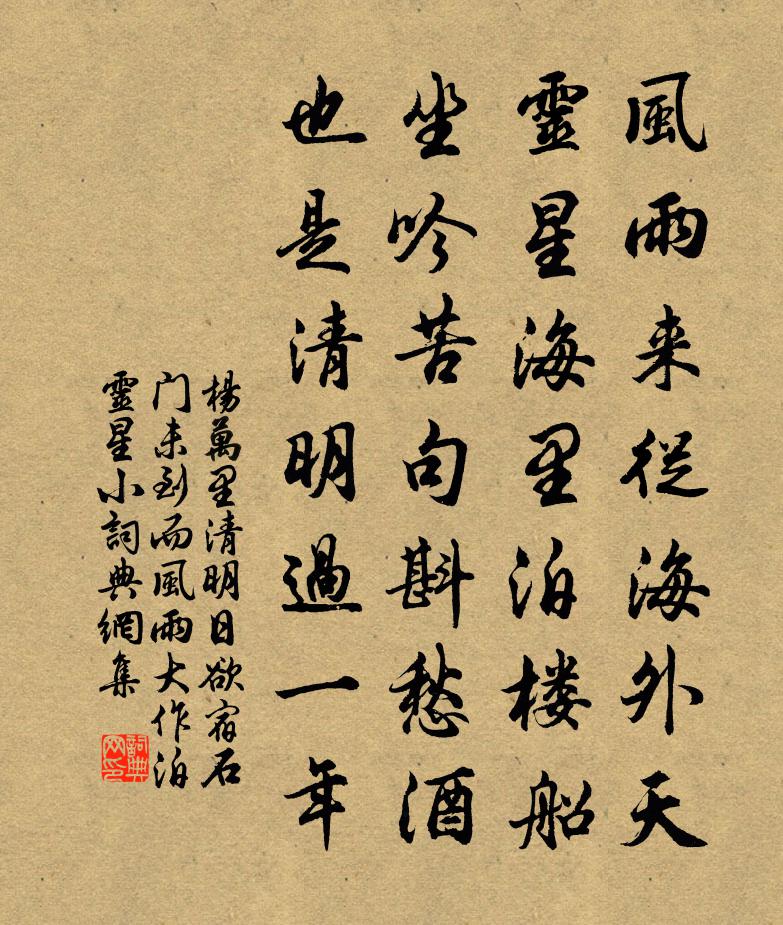 風雨来從海外天
靈星海里泊楼船
坐吟苦句斟愁酒
也是清明過一年
楊萬里清明日欲宿石
门未到而風雨大作泊
靈星小詞典網集
詞典網印